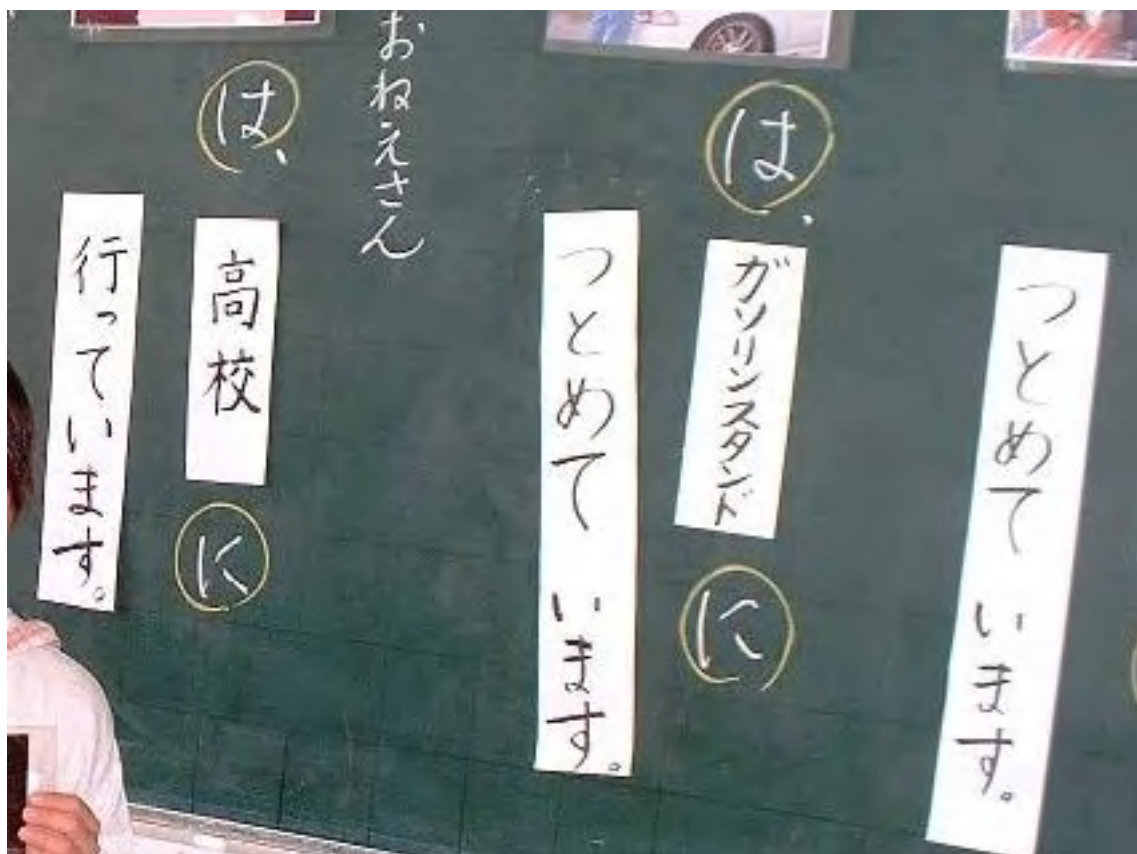 つとめて います。
は、
ガソリンスタンド
に
つとめて います。
おねえさん
は、
高校
に
行っています。